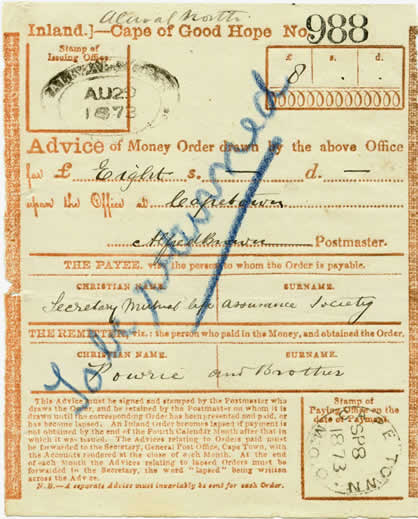 Aliwal North
Inland.]—Cape of Good Hope No. 988
Stamp of
Issuing Office.
AU 29
1873
£ s. d.
8 . .
Advice of Money Order drawn by the above Office
for £ Eight s. — d. —
upon the Office at Capetown
Postmaster.
THE PAYEE, viz. the person to whom the Order is payable.
CHRISTIAN NAME. SURNAME.
Secretary Mutual Life Assurance Society
THE REMITTER, viz.: the person who paid in the Money, and obtained the Order.
CHRISTIAN NAME. SURNAME.
Powrie and Brother
This Advice must be signed and stamped by the Postmaster who
draws the Order, and be retained by the Postmaster on whom it is
drawn until the corresponding Order has been presented and paid, or
has become lapsed. An Inland Order becomes lapsed if payment is
not obtained by the end of the Fourth Calendar Month after that in
which it was issued. The Advices relating to Orders paid must
be forwarded to the Secretary, General Post Office, Cape Town, with
the Accounts rendered at the close of each Month. At the end
of each Month the Advices relating to lapsed Orders must be
forwarded to the Secretary, the word "lapsed" being written
across the Advice.
N.B.—A separate Advice must invariably be sent for each Order.
Stamp of
Paying Office on the
date of Payment.
SP 8
1873
M.O.O.